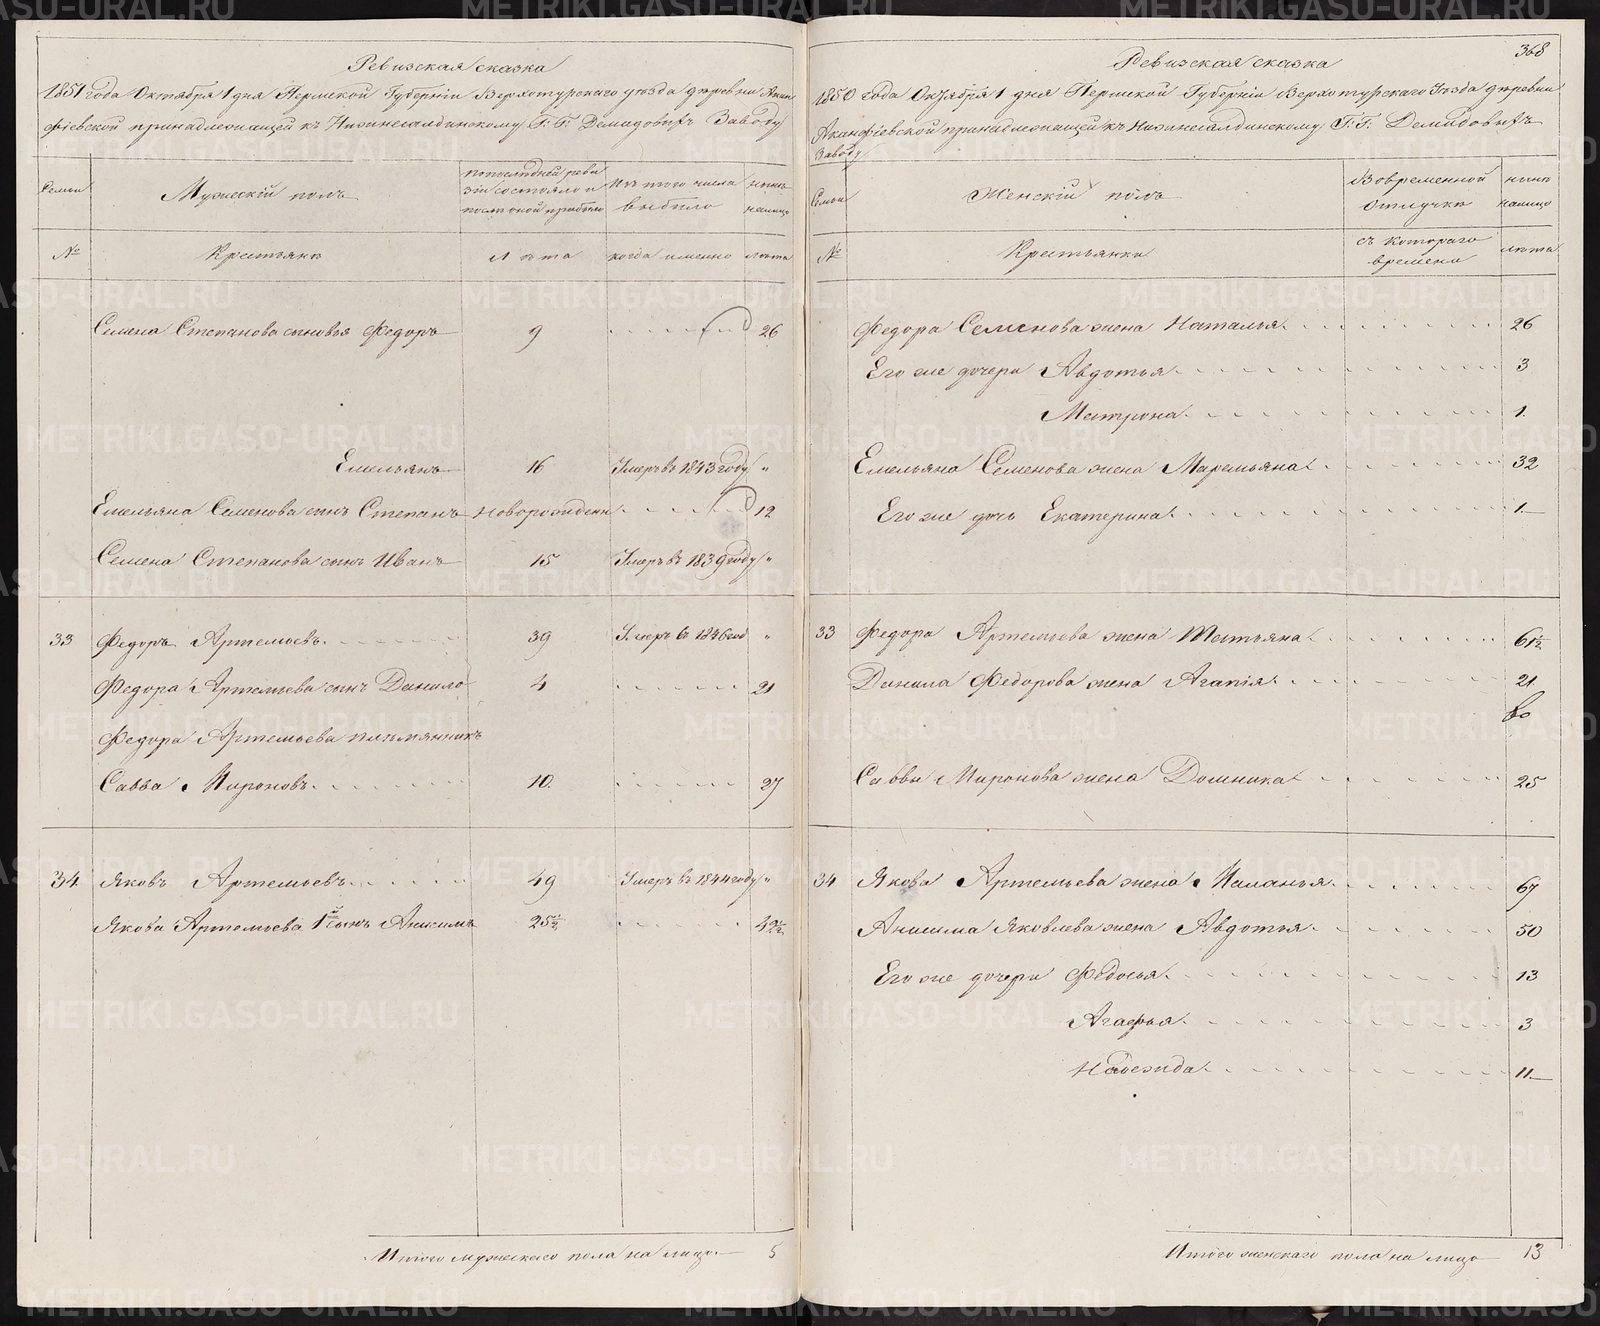 Ревизская сказка
1851 года Октября 1 дня Пермской Губернiи Верхотурского уѣзда деревни Акин
фiевской принадлежащей къ Нижнесалдинскому Г.Г. Демидовыхъ Заводу
Семьи
Мужескiй полъ
по последней реви
зiи состояло и
после оной прибыло
Изъ того числа
выбыло
нынѣ
налицо
№
Крестьянъ
Лѣта
когда именно
лѣта
Семена Степанова сыновья Федоръ 9 26
Емельянъ 16 Умеръ въ 1843 году "
Емельяна Семенова сынъ Степанъ Новорожденн 12
Семена Степанова сынъ Иванъ 15 Умеръ въ 1839 году "
33 Федоръ Артемьевъ 39 Умеръ въ 1846 год "
Федора Артемьева сынъ Данило 4 21
Федора Артемьева племянникъ
Савва Мироновъ 10. 27
34 Яковъ Артемьевъ 49 Умеръ въ 1844 году "
Якова Артемьева 1й сынъ Анисимъ 25½ 42½
Итого мужескаго пола на лицо 5
368
Ревизская сказка
1850 года Октября 1 дня Пермской Губернiи Верхотурскаго Уѣзда деревни
Акинфiевской принадлежащей къ Нижнесалдинскому Г.Г. Демидовыхъ
Заводу
Семьи
Женскiй полъ
Вовременной
отлучке
нынѣ
налицо
№
Крестьянки
съ котораго
времени
лѣта
Федора Семенова жена Наталья 26
Его же дочери Авдотья 3
Матрона 1
Емельяна Семенова жена Маремьяна 32
Его же дочь Екатерина 1
33 Федора Артемьева жена Татьяна 61½
Данила Федорова жена Агапiя 21
Саввы Миронова жена Домника 25
34 Якова Артемьева жена Маланья 67
Анисима Яковлева жена Авдотья 50
Его же дочери Федосья 13
Агафья 3
Надежда 11
Итого женскаго пола на лицо 13
METRIKI.GASO-URAL.RU